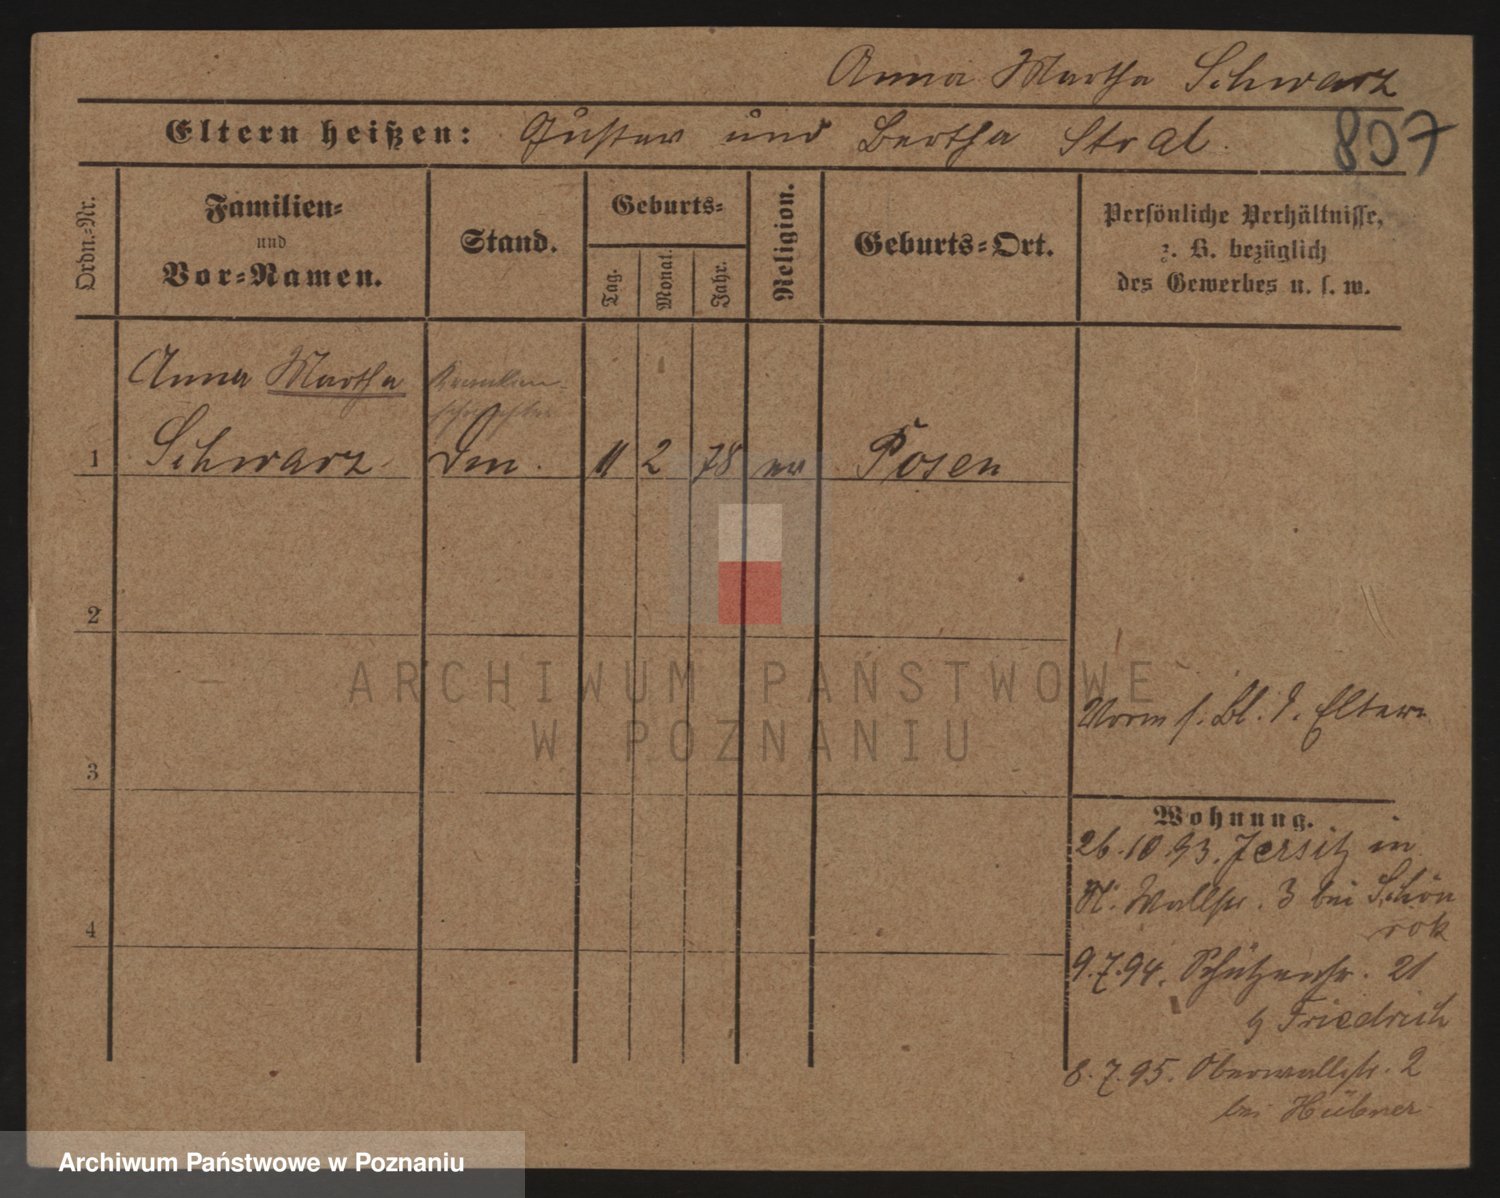 Anna Martha Schwarz
Eltern heißen: Gustav und Bertha Stral.
807
Ordn.-Nr.
Familien-
und
Vor-Namen.
Stand.
Geburts-
Tag.
Monat.
Jahr.
Religion.
Geburts-Ort.
Persönliche Verhältnisse,
z. B. bezüglich
des Gewerbes u. s. w.
Anna Martha
Kranken-
schwester
1 Schwarz. 11 2 78 ev Posen
2
3
4
Vorm s. Bl. d. Eltern
Wohnung.
26.10.93. Jersitz in
Kl. Wallstr. 3 bei Schön
rok
9.7.94. Schützenstr. 21
b Friedrich
8.7.95. Oberwallstr. 2
bei Hübner
ARCHIWUM PAŃSTWOWE
W POZNANIU
Archiwum Państwowe w Poznaniu